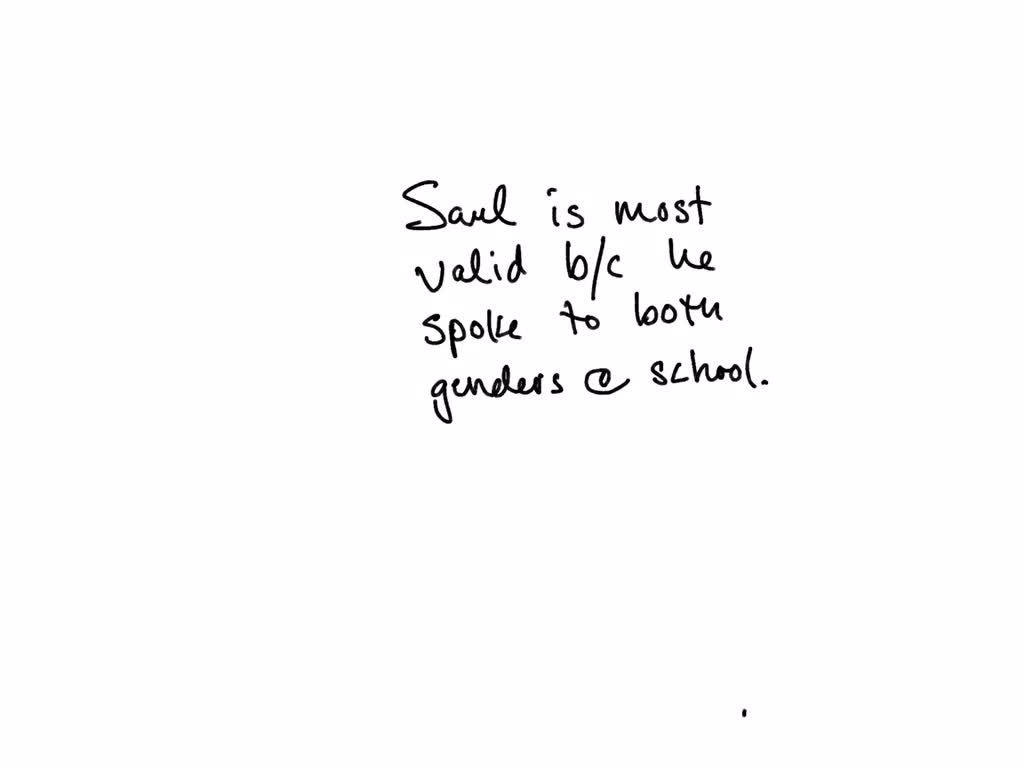 Saul is most
valid b/c he
spoke to both
genders @ school.